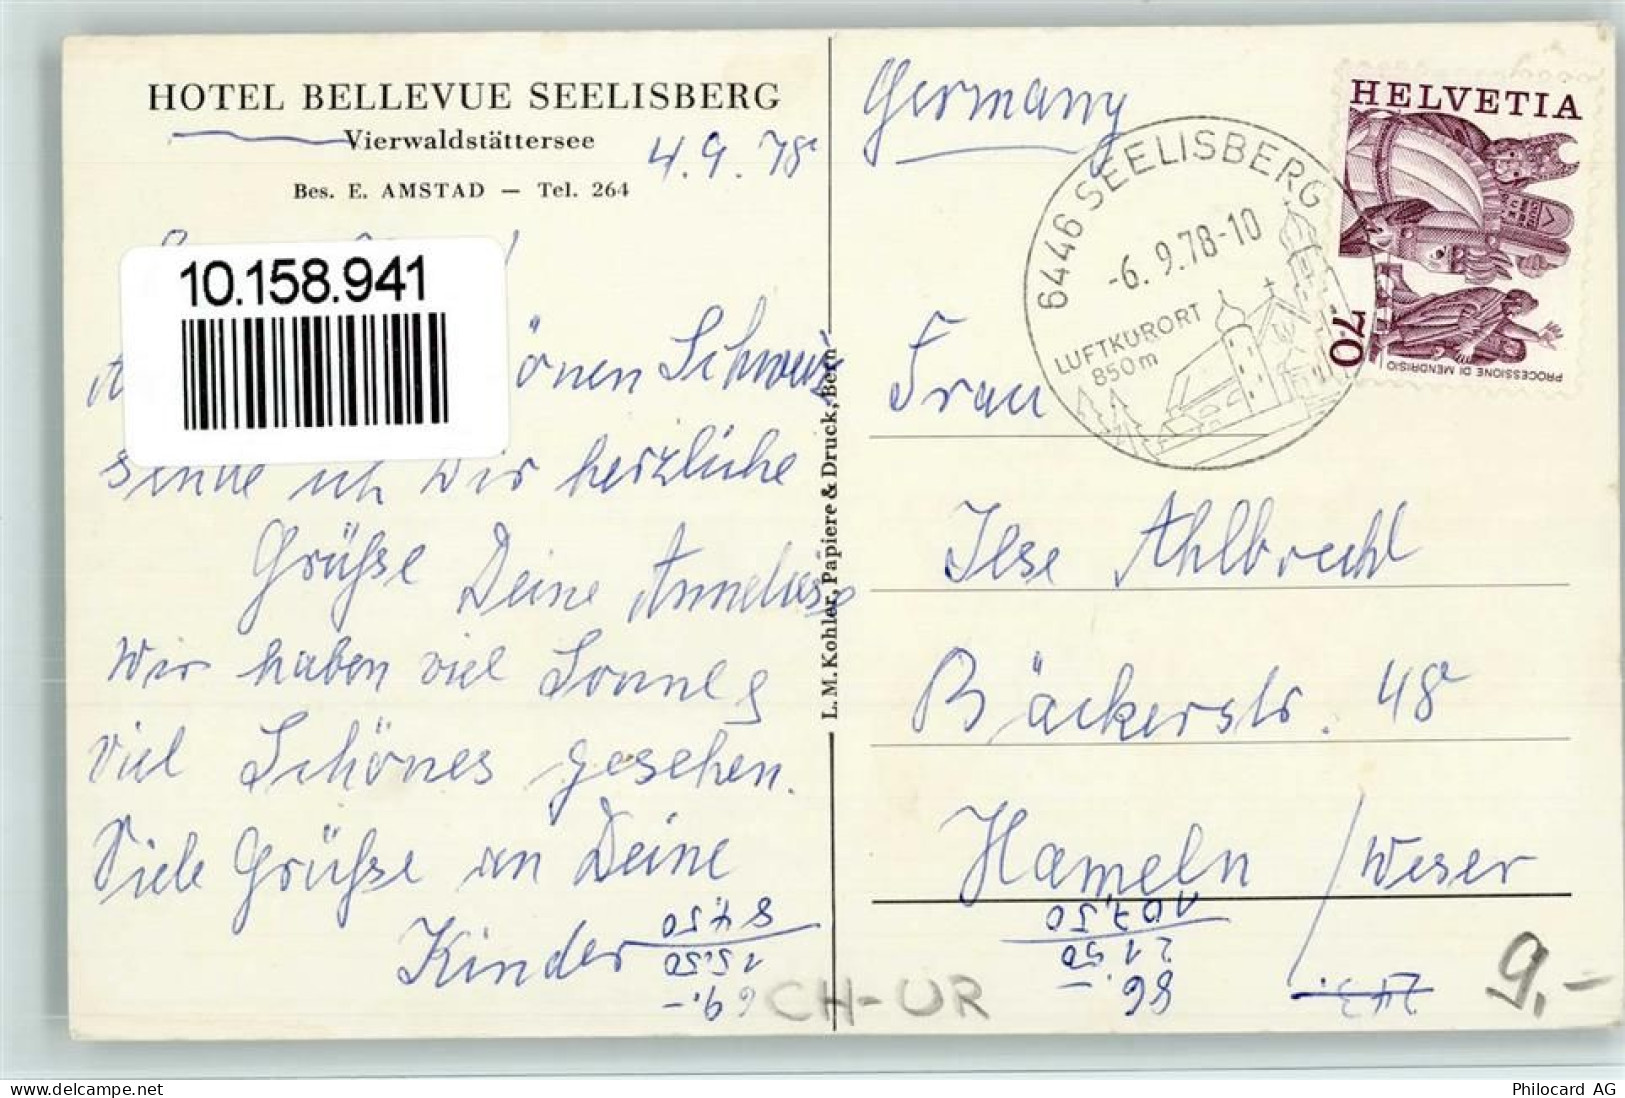 HOTEL BELLEVUE SEELISBERG
Vierwaldstättersee
Bes. E. AMSTAD — Tel. 264
4.9.78
10.158.941
önen Schweiz
sende ich Dir herzliche
Grüße Deine Anneliese
Wir haben viel Sonne &
viel Schönes gesehen.
Viele Grüße an Deine
Kinder
84.50
15.50
69.-
L. M. Kohler, Papiere & Druck, Bern
Germany
6446 SEELISBERG
-6.9.78-10
LUFTKURORT
850m
HELVETIA
70
PROCESSIONE DI MENDRISIO
Frau
Ilse Ahlbrecht
Bäckerstr. 48
Hameln / Weser
107,50
21.50
86.-
243.-
CH-UR
9.-
https://www.delcampe.net
Philocard AG